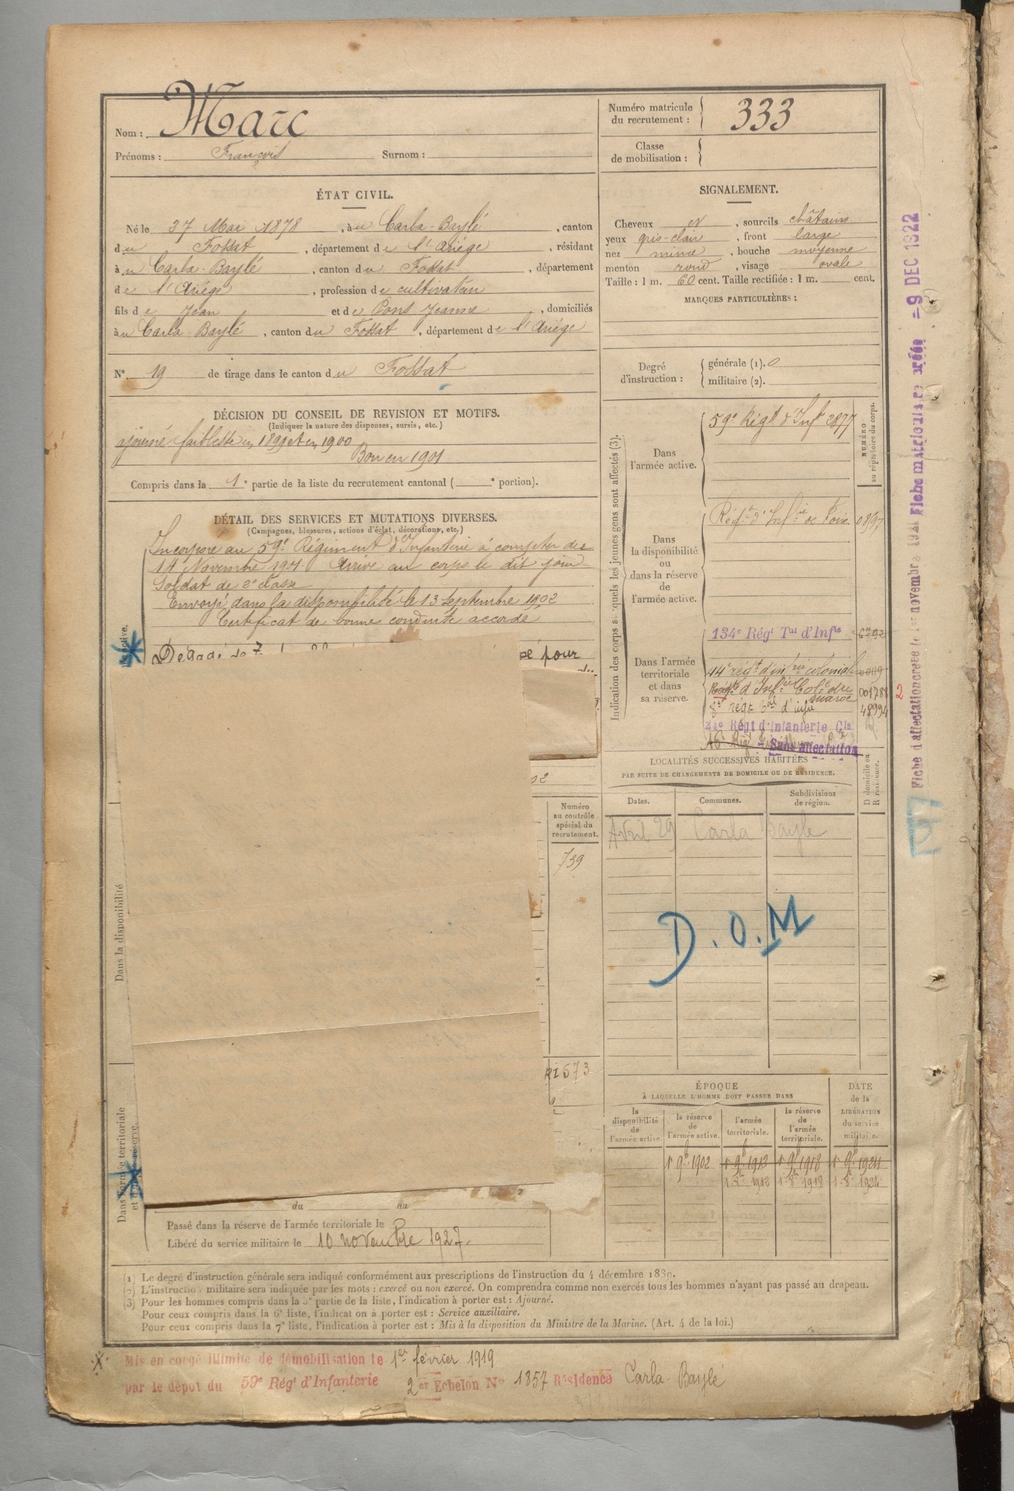 Nom : Marc
Prénoms : François Surnom :
Numéro matricule du recrutement : 333
Classe de mobilisation :
ÉTAT CIVIL.
Né le 27 Mai 1878, à u Carla-Baylé, canton
du Fossat, département de l'Ariége, résidant
à u Carla-Baylé, canton du Fossat, département
de l'Ariége, profession de cultivateur
fils de Jean et de Pons Jeanne, domiciliés
à u Carla-Baylé, canton du Fossat, département de l'Ariége
N° 19 de tirage dans le canton du Fossat
SIGNALEMENT.
Cheveux et, sourcils châtains
yeux gris-clair, front large
nez mince, bouche moyenne
menton rond, visage ovale
Taille : 1 m. 60 cent. Taille rectifiée : 1 m. cent.
MARQUES PARTICULIÈRES :
Degré d'instruction : générale (1). 0
militaire (2).
DÉCISION DU CONSEIL DE REVISION ET MOTIFS.
(Indiquer la nature des dispenses, sursis, etc.)
ajourné faiblesse en 1899 et en 1900
Bon en 1901
Compris dans la 1e partie de la liste du recrutement cantonal ( e portion).
DÉTAIL DES SERVICES ET MUTATIONS DIVERSES.
(Campagnes, blessures, actions d'éclat, décorations, etc.)
Incorporé au 59e Régiment d'Infanterie à compter du
14 Novembre 1901 Arrivé au corps le dit jour
Soldat de 2e classe
Envoyé dans la disponibilité le 13 Septembre 1902
Certificat de bonne conduite accordé
pour
Indication des corps auxquels les jeunes gens sont affectés (3).
NUMÉRO au répertoire du corps.
Dans l'armée active.
59e Régt d'Inf 2877
Dans la disponibilité ou dans la réserve de l'armée active.
Régt d'Infie de Foix
Dans l'armée territoriale et dans sa réserve.
134e Régt Tal d'Infie
14e régt d'infie coloniale
Régt d'Infie Colle du Maroc 001781
48994
21e Régt d'Infanterie Cle
Sans affectation
LOCALITÉS SUCCESSIVES HABITÉES
PAR SUITE DE CHANGEMENTS DE DOMICILE OU DE RÉSIDENCE.
Dates. Communes. Subdivisions de région. D domicile ou R résidence.
Avril 29 Carla Bayle
D.O.M
Numéro au contrôle spécial du recrutement.
739
Dans la disponibilité
Dans l'armée territoriale et dans sa réserve.
ÉPOQUE
À LAQUELLE L'HOMME DOIT PASSER DANS
la disponibilité de l'armée active.
la réserve de l'armée active.
l'armée territoriale.
la réserve de l'armée territoriale.
DATE de la LIBÉRATION du service militaire.
1 9bre 1902
du au
Passé dans la réserve de l'armée territoriale le
Libéré du service militaire le 10 novembre 1927.
(1) Le degré d'instruction générale sera indiqué conformément aux prescriptions de l'instruction du 4 décembre 1889.
(2) L'instruction militaire sera indiquée par les mots : exercé ou non exercé. On comprendra comme non exercés tous les hommes n'ayant pas passé au drapeau.
(3) Pour les hommes compris dans la 5e partie de la liste, l'indication à porter est : Ajourné.
Pour ceux compris dans la 6e liste, l'indication à porter est : Service auxiliaire.
Pour ceux compris dans la 7e liste, l'indication à porter est : Mis à la disposition du Ministre de la Marine. (Art. 4 de la loi.)
Mis en congé illimité de démobilisation le 1er février 1919
par le dépôt du 59e Régt d'Infanterie 2e Echelon N° 1357 Résidence Carla-Baylé
-9 DEC 1922